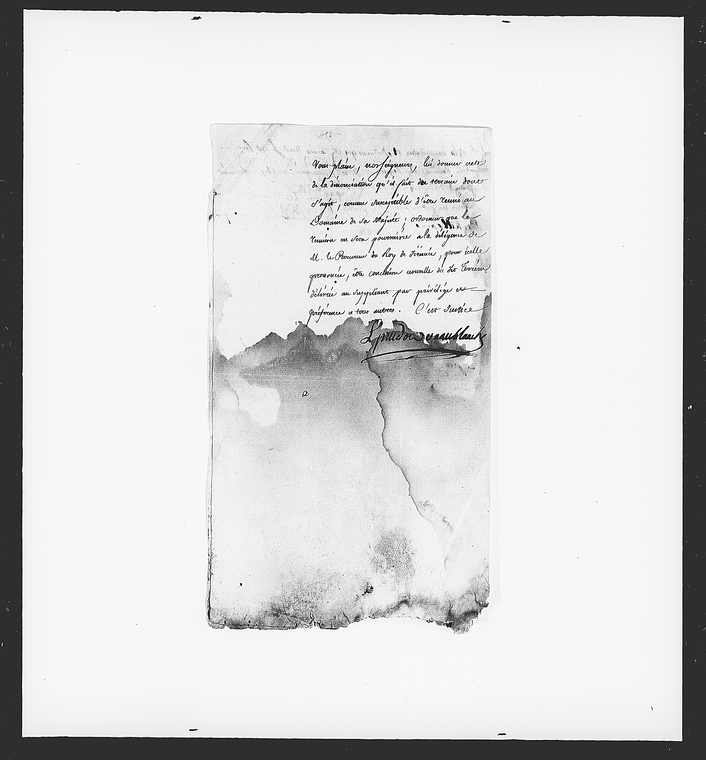 Vous plaise, nosseigneurs, lui donner acte
de la dénonciation qu'il fait du terrain dont
s'agit, comme susceptible d'être réuni au
Domaine de sa Majesté; ordonner que la
réunion en sera poursuivie à la diligence de
M. le Procureur du Roy de , pour icelle
prononcée, être concession nouvelle du dit Terrein
délivrée au suppliant par privilége et
préférence a tous autres. C'est Justice